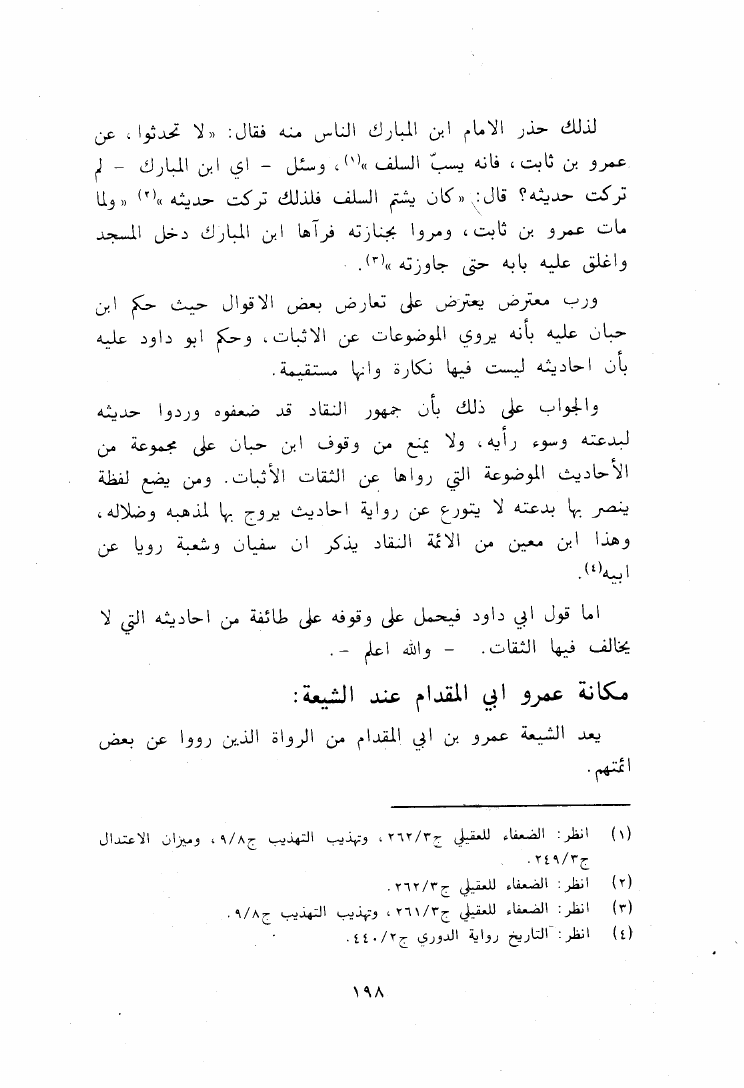 لذلك حذر الامام ابن المبارك الناس منه فقال: «لا تحدثوا، عن
عمرو بن ثابت، فانه يسبّ السلف»(١)، وسئل - اي ابن المبارك - لم
تركت حديثه؟ قال: «كان يشتم السلف فلذلك تركت حديثه»(٢) «ولما
مات عمرو بن ثابت، ومروا بجنازته فرآها ابن المبارك دخل المسجد
واغلق عليه بابه حتى جاوزته»(٣).
ورب معترض يعترض على تعارض بعض الاقوال حيث حكم ابن
حبان عليه بأنه يروي الموضوعات عن الاثبات، وحكم ابو داود عليه
بأن احاديثه ليست فيها نكارة وانها مستقيمة.
والجواب على ذلك بأن جمهور النقاد قد ضعفوه وردوا حديثه
لبدعته وسوء رأيه، ولا يمنع من وقوف ابن حبان على مجموعة من
الأحاديث الموضوعة التي رواها عن الثقات الأثبات. ومن يضع لفظة
ينصر بها بدعته لا يتورع عن رواية احاديث يروج بها لمذهبه وضلاله،
وهذا ابن معين من الائمة النقاد يذكر ان سفيان وشعبة رويا عن
ابيه(٤).
اما قول ابي داود فيحمل على وقوفه على طائفة من احاديثه التي لا
يخالف فيها الثقات. - والله اعلم -.
مكانة عمرو ابي المقدام عند الشيعة:
يعد الشيعة عمرو بن ابي المقدام من الرواة الذين رووا عن بعض
ائمتهم.
(١) انظر: الضعفاء للعقيلي ج٢٦٢/٣، وتهذيب التهذيب ج٩/٨، وميزان الاعتدال
ج٢٤٩/٣.
(٢) انظر: الضعفاء للعقيلي ج٢٦٢/٣.
(٣) انظر: الضعفاء للعقيلي ج٢٦١/٣، وتهذيب التهذيب ج٩/٨.
(٤) انظر: التاريخ رواية الدوري ج٤٤٠/٢.
١٩٨